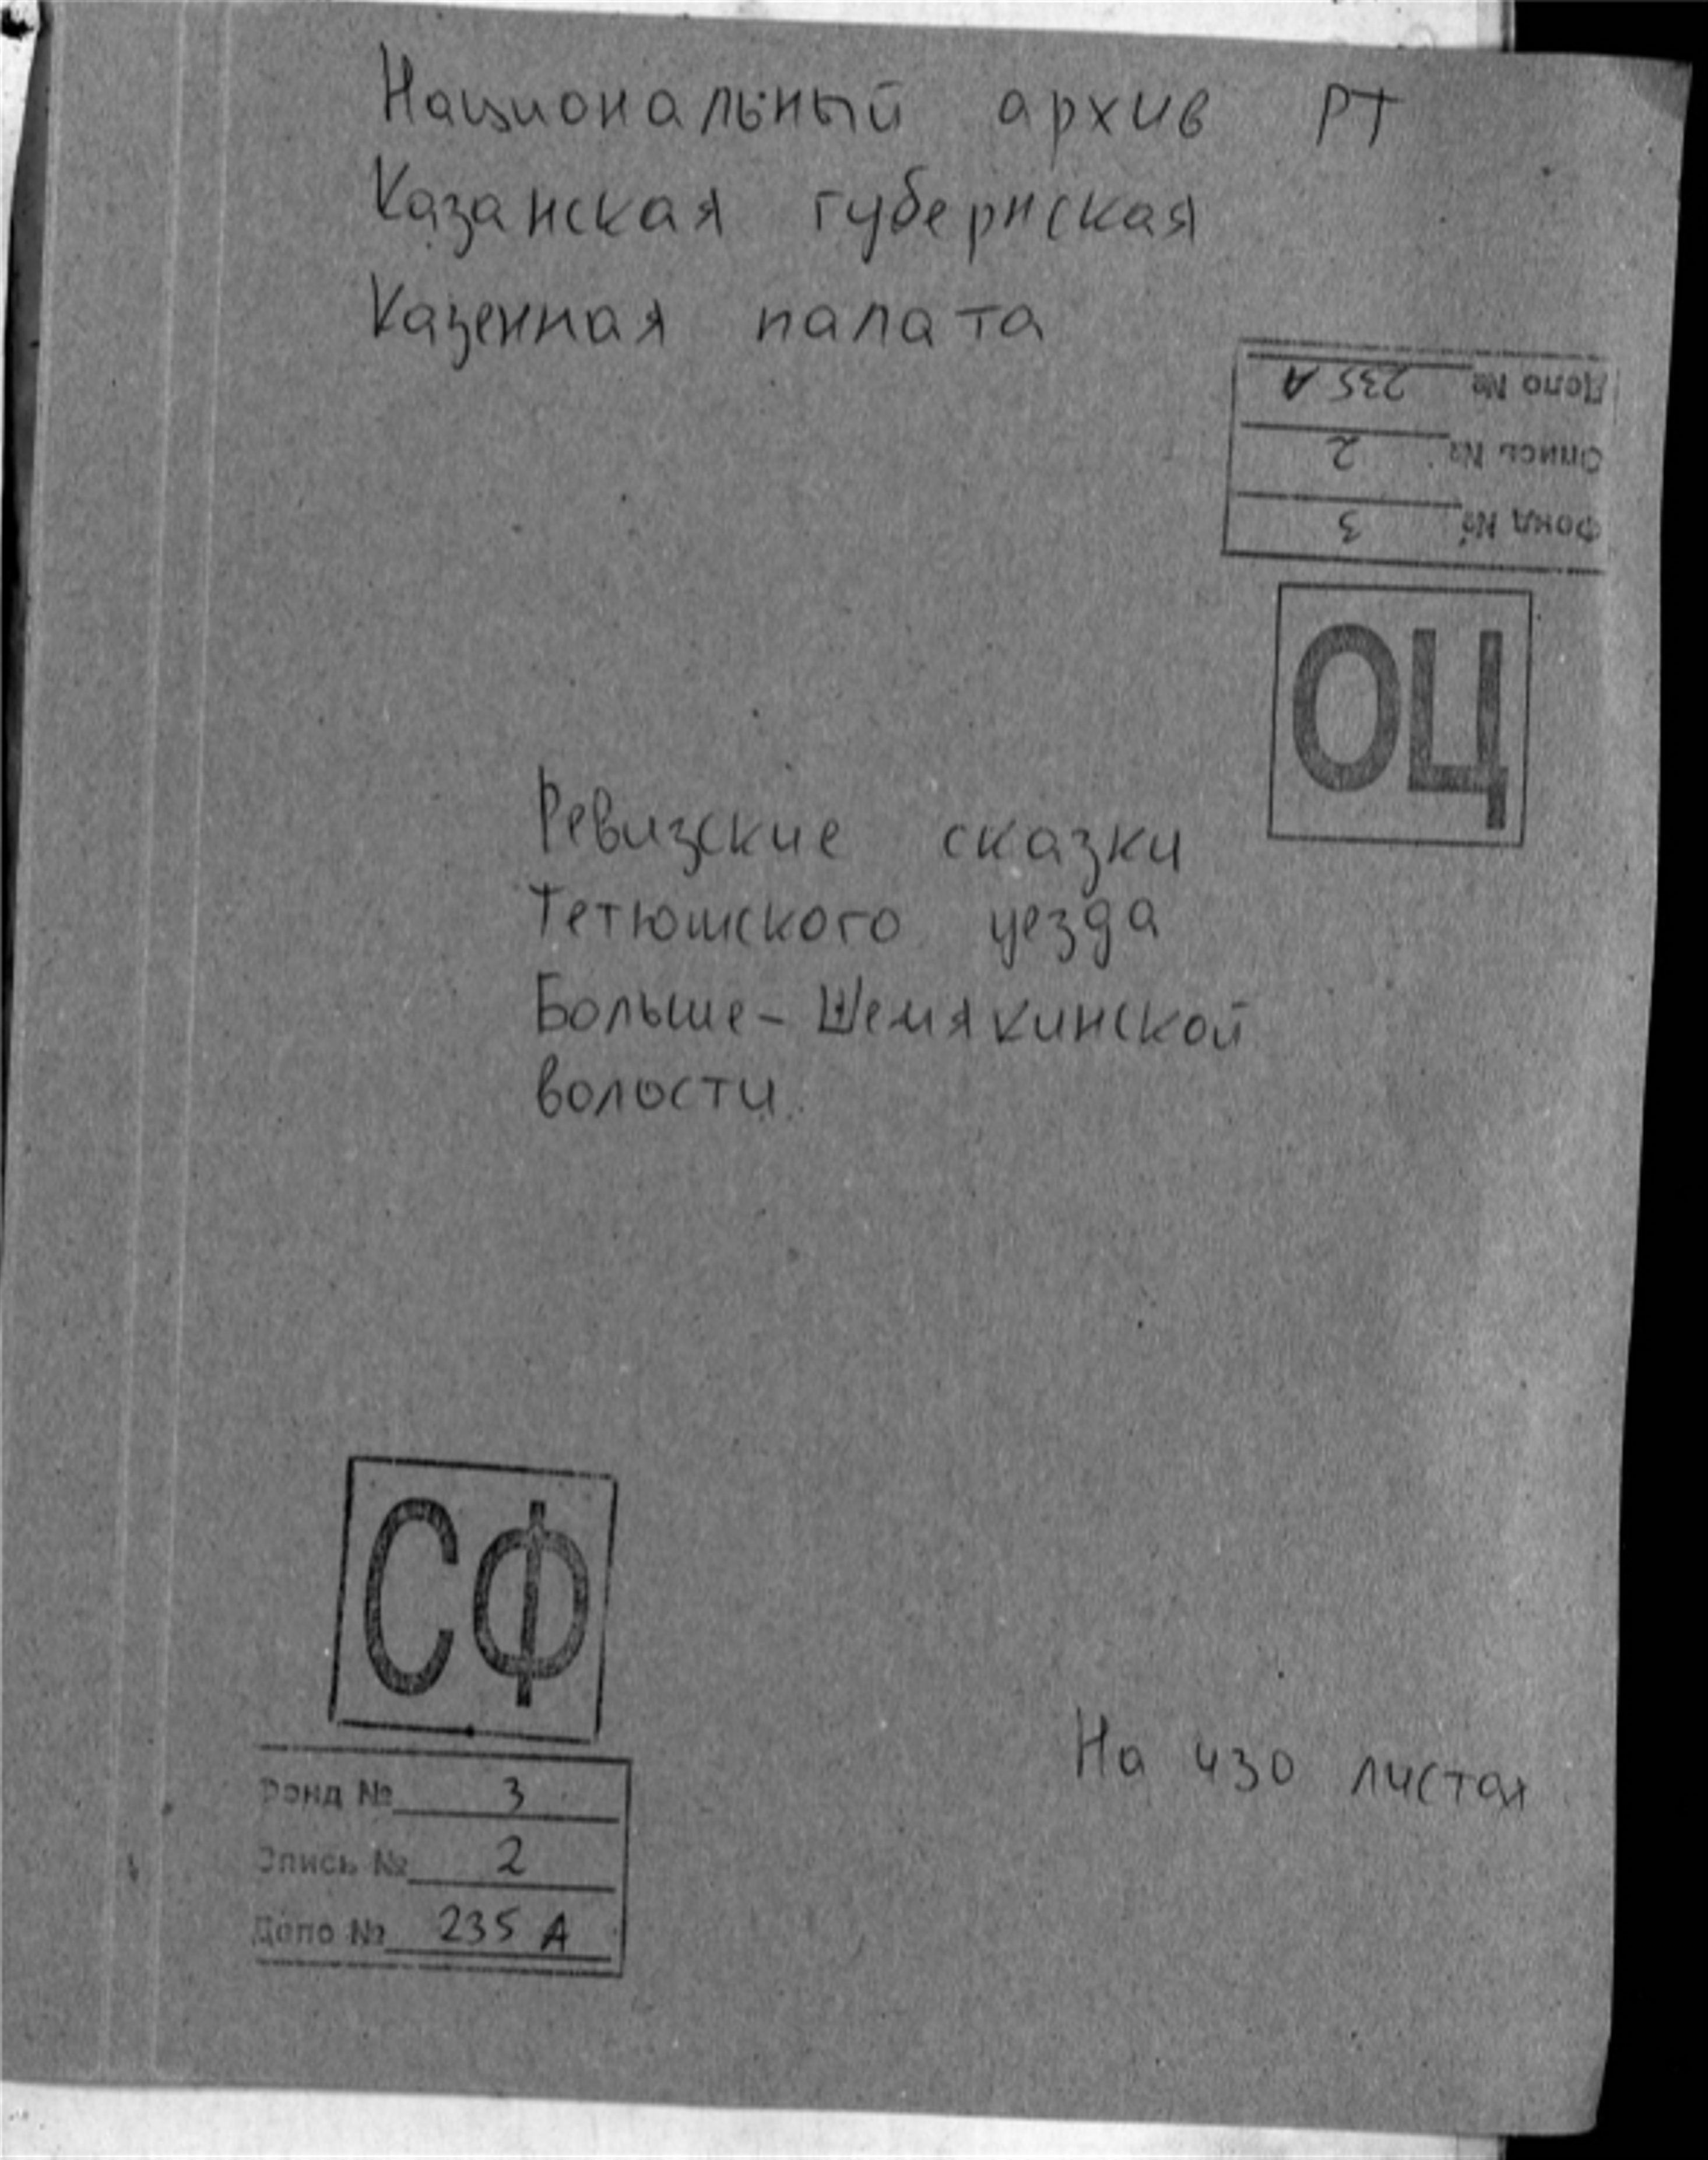 Национальный архив РТ
Казанская губернская
Казенная палата
Дело № 235 А
Опись № 2
Фонд № 3
ОЦ
Ревизские сказки
Тетюшского уезда
Больше-Шемякинской
волости
СФ
На 430 листах
Фонд № 3
Опись № 2
Дело № 235 А